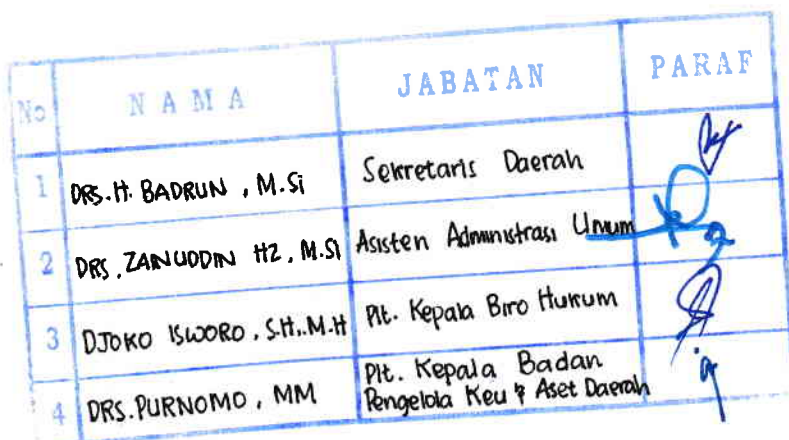 No N A M A JABATAN PARAF
1 DRS. H. BADRUN , M.Si Sekretaris Daerah
2 DRS, ZAINUDDIN HZ, M.Si Asisten Administrasi Umum
3 DJOKO ISWORO, S.H.,M.H Plt. Kepala Biro Hukum
4 DRS.PURNOMO, MM Plt. Kepala Badan
Pengelola Keu & Aset Daerah